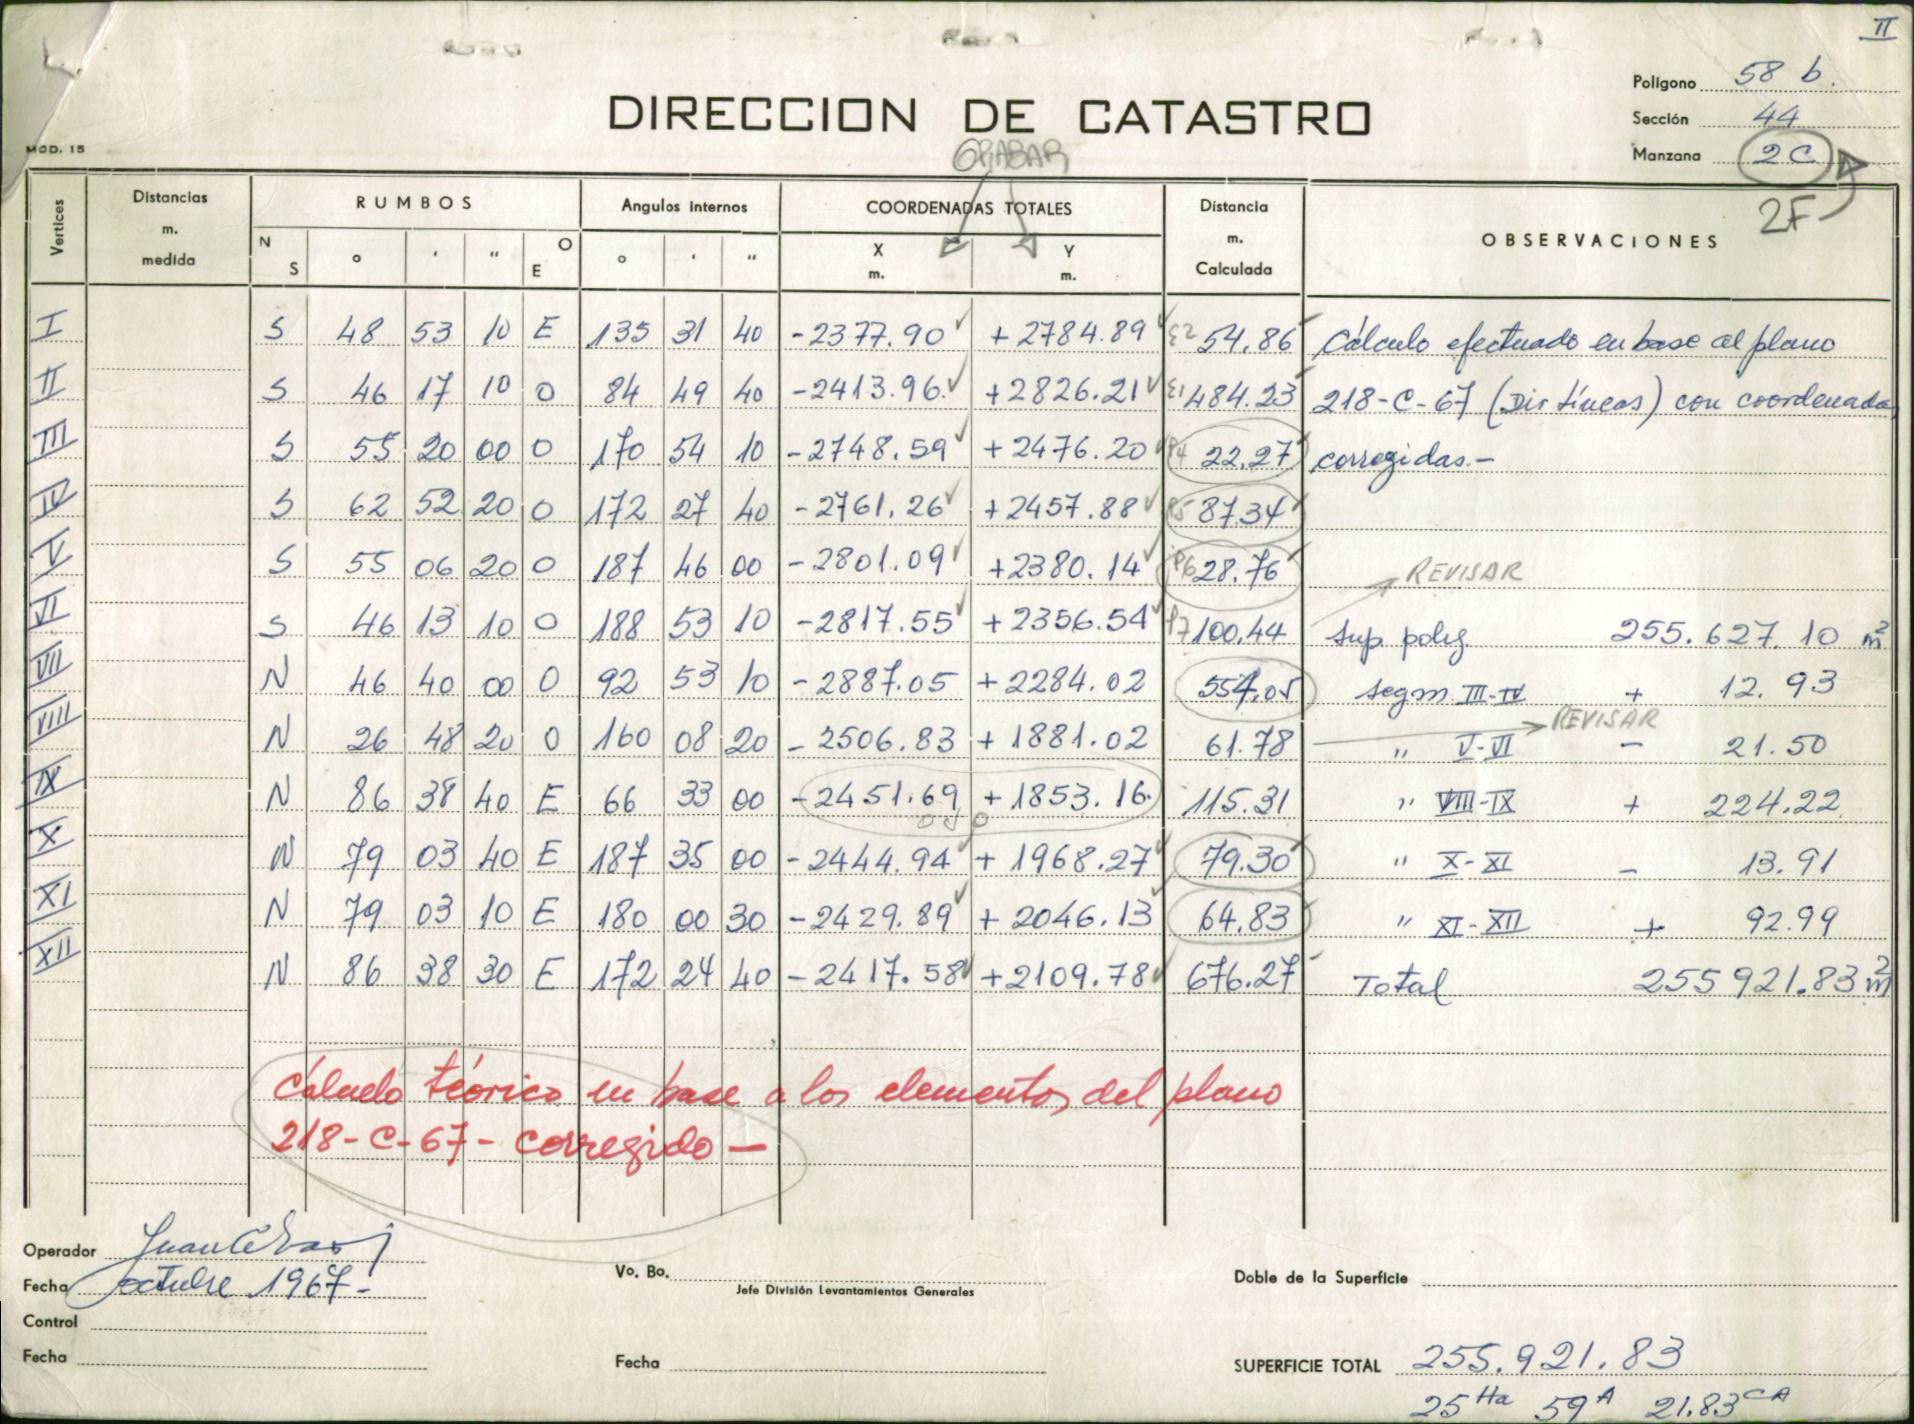 II
Polígono 58 b.
DIRECCION DE CATASTRO
Sección 44
MOD. 15
GRABAR
Manzana 2C
2F
Vertices
Distancias m. medida
RUMBOS
Angulos internos
COORDENADAS TOTALES
Distancia m. Calculada
OBSERVACIONES
N S ° ' " O E ° ' " X m. Y m.
I S 48 53 10 E 135 31 40 -2377.90 +2784.89 54.86 Cálculo efectuado en base al plano
II S 46 17 10 O 84 49 40 -2413.96 +2826.21 484.23 218-C-67 (Dir Líneas) con coordenadas
III S 55 20 00 O 170 54 10 -2748.59 +2476.20 P4 22.27 corregidas.-
IV S 62 52 20 O 172 27 40 -2761.26 +2457.88 P5 87.34
V S 55 06 20 O 187 46 00 -2801.09 +2380.14 P6 28.76 REVISAR
VI S 46 13 10 O 188 53 10 -2817.55 +2356.54 P7 100.44 Sup. polig. 255.627.10 m²
VII N 46 40 00 O 92 53 10 -2887.05 +2284.02 554.05 Segm III-IV + 12.93
VIII N 26 48 20 O 160 08 20 -2506.83 +1881.02 61.78 " V-VI - 21.50 REVISAR
IX N 86 38 40 E 66 33 00 -2451.69 +1853.16 115.31 " VIII-IX + 224.22
X N 79 03 40 E 187 35 00 -2444.94 +1968.27 79.30 " X-XI - 13.91
XI N 79 03 10 E 180 00 30 -2429.89 +2046.13 64.83 " XI-XII + 92.99
XII N 86 38 30 E 172 24 40 -2417.58 +2109.78 676.27 Total 255921.83 m²
Cálculo teórico en base a los elementos del plano
218-C-67- corregido —
Operador
Fecha octubre 1967-
Vo. Bo.
Jefe División Levantamientos Generales
Doble de la Superficie
Control
Fecha
Fecha
SUPERFICIE TOTAL 255.921.83
25 Ha 59 A 21.83 CA